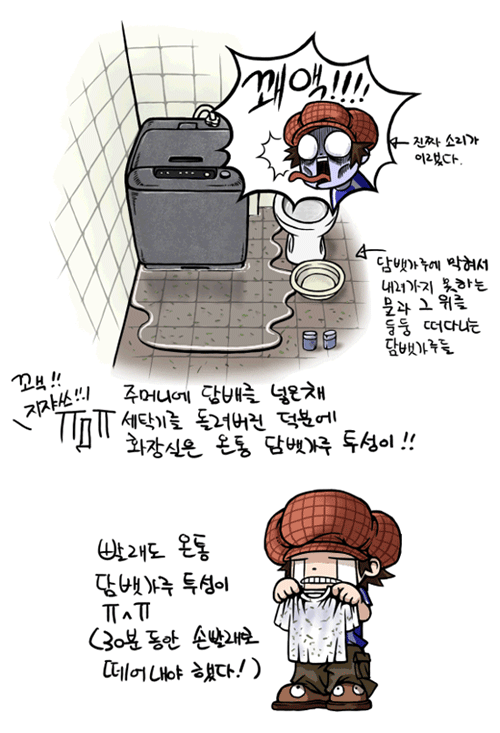 꽤액!!!!
진짜 소리가
이랬다.
담뱃가루에 막혀서
내려가지 못하는
물과 그 위를
둥둥 떠다니는
담뱃가루들
꼬빅!!
지쟈쓰!!
ㅠㅁㅠ
주머니에 담배를 넣은채
세탁기를 돌려버린 덕분에
화장실은 온통 담뱃가루 투성이!!
빨래도 온통
담뱃가루 투성이
ㅠㅅㅠ
(30분 동안 손빨래로
떼어내야 했다!)